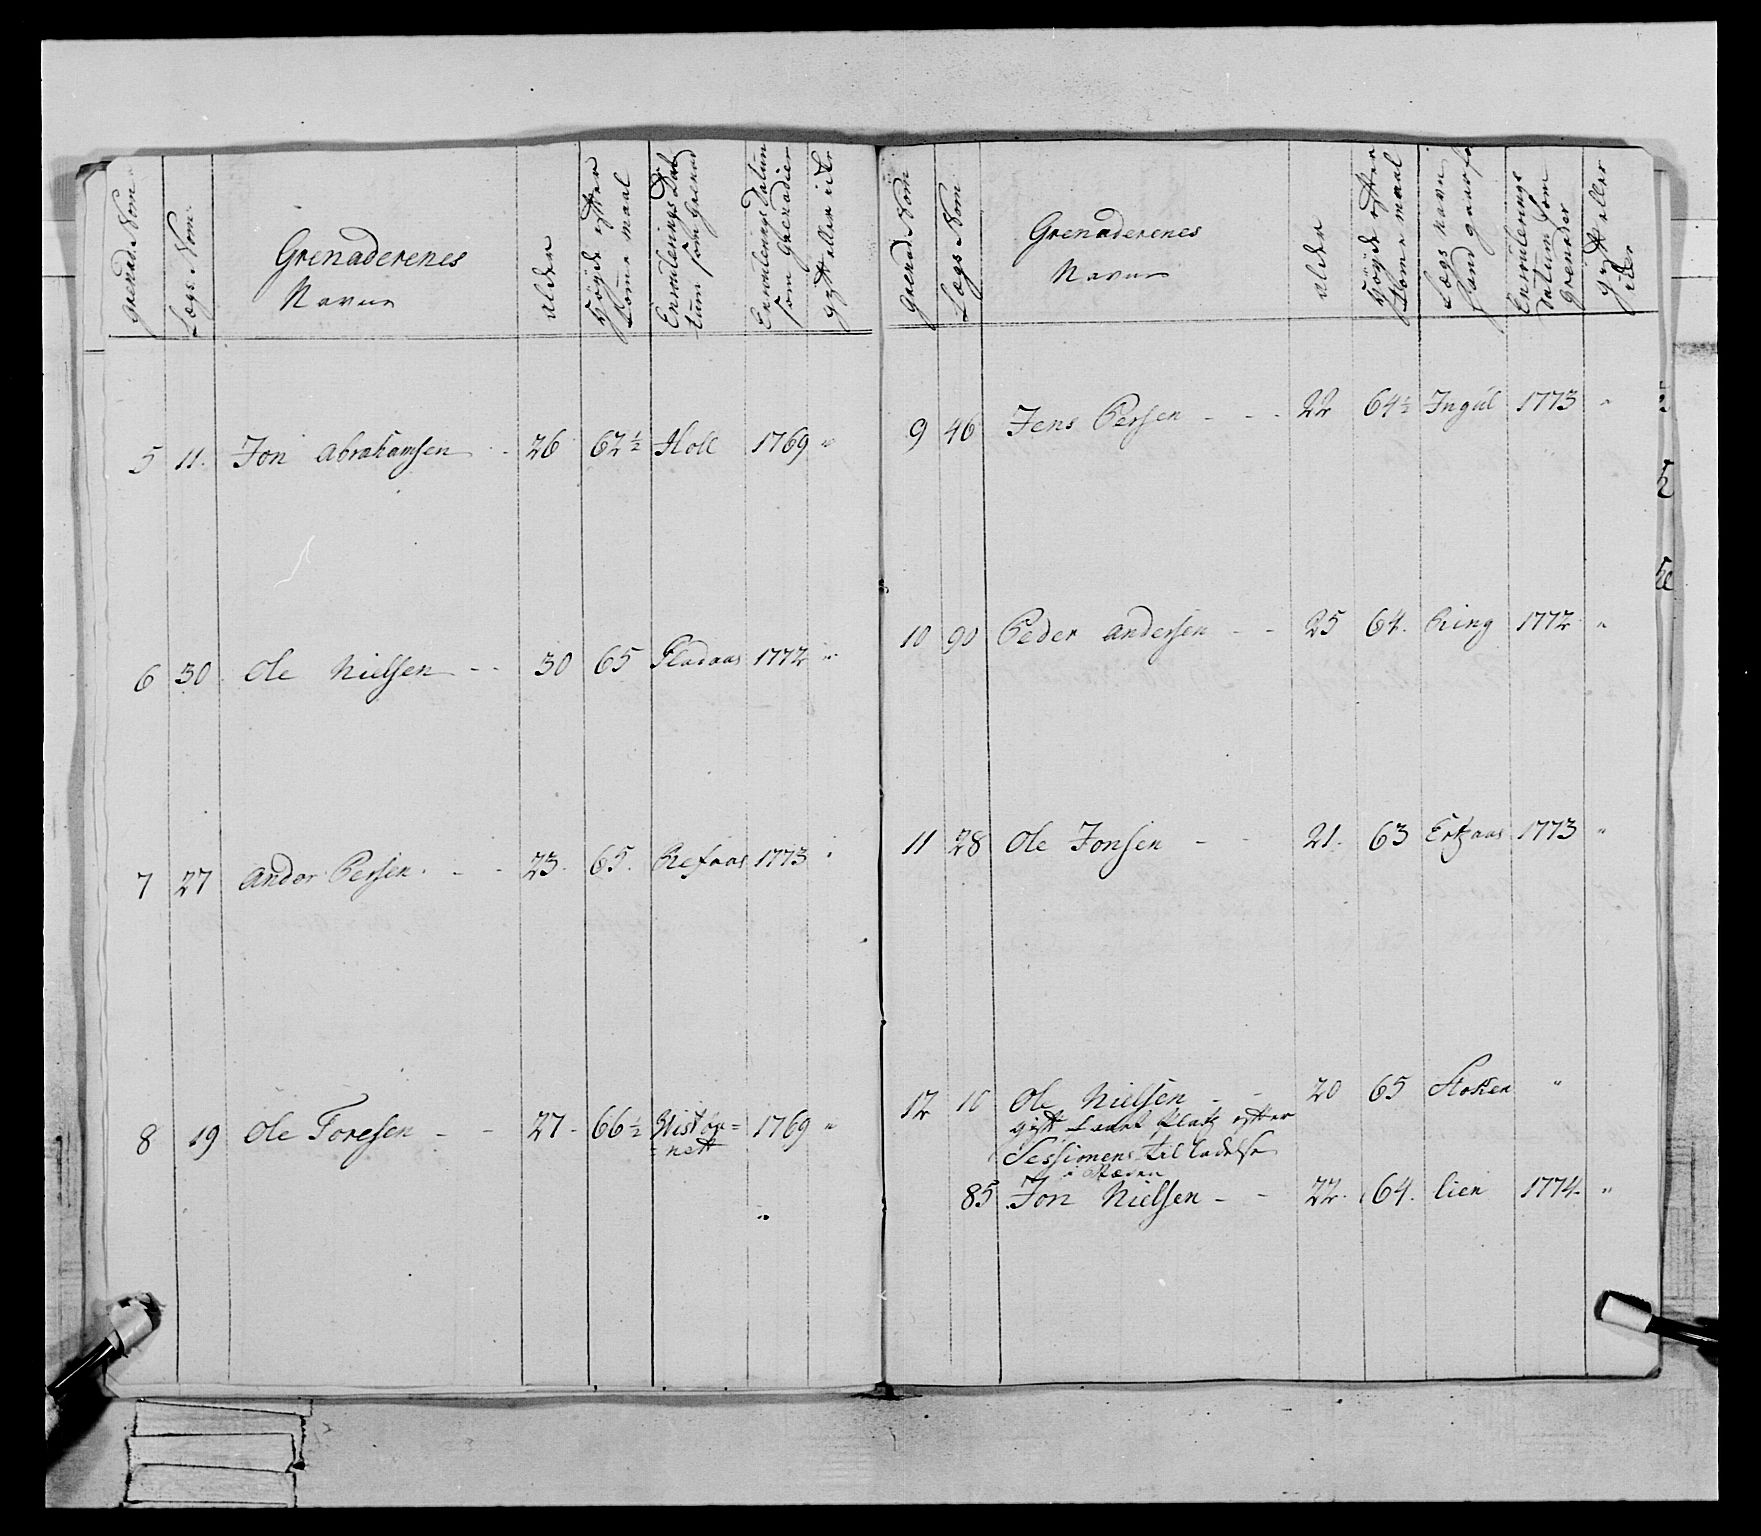 Grenad: Nom
Lægs. Nom.
Grenaderenes
Navne
alder
Høÿde efter
tomme maal
Enroulerings Da
tum som Grenad
Enroulerings Datum
som Grenadier
gift eller icke
5 11. Jon Abrahamsen - 26 62½ Holl 1769 "
6 30 Ole Nielsen - - 30 65 Fladaas 1772 "
7 27 Ander Persen. - - 23. 65. Refsaas 1773 "
8 19 Ole Toresen - - 27- 66½ 1769 "
=nett
"
Grenad Nom
Lægs Nom
Grenaderenes
Navne
alder
Høÿde efter
tomme maal
Lægs navn
hand
Enroulerings
Datum som
Grenader
gift eller
icke
9 46 Jens Persen - - - 22 64½ Ingul 1773 "
10 90 Peder Andersen - - 25 64. Ring 1772 "
11 28 Ole Jonsen - - 21. 63 1773 "
12 Ole Nielsen - - 20 65 Stokken "
gift Platz efter
Sessionens tilladelse
85 Jon Nielsen - - 22. 64. lien 1774. "